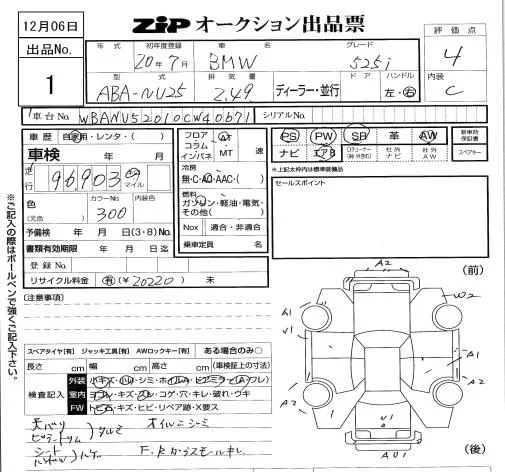 12月06日
ZiP オークション出品票
出品No.
1
年式
初年度登録
20年7月
車名
BMW
グレード
525i
評価点
4
型式
ABA-NU25
排気量
2.49
ディーラー・並行
ドア
ハンドル
左・右
内装
C
車台No.
WBANU52010CW40671
シリアルNo.
車歴
自家用・レンタ・( )
車検 年 月
走行
96,903
マイル
色
(元色)
カラーNo.
300
内装色
予備検 年 月 日(3・8)No.
書類有効期限 年 月 日迄
登録No.
リサイクル料金 有(¥20220) 未
フロア
コラム
インパネ
AT
MT
速
冷房
無・C・AC・AAC・( )
燃料
ガソリン・軽油・電気・
その他( )
Nox
適合・非適合
乗車定員 名
PS
PW
SR
革
AW
ナビ
エアB
社外
ナビ
社外
AW
新車時
保証書
スペアキー
※上記太枠内は標準装備品
セールスポイント
※ご記入の際はボールペンで強くご記入下さい。
(注意事項)
スペアタイヤ[有] ジャッキ工具[有] AWロックキー[有] ある場合のみ○
長さ cm 幅 cm 高さ cm (車検証上の寸法)
検査記入
外装
小キズ・凹・シミ・ホイルA・ピラミラー(A・ワレ)
室内
ヨゴレ・キズ・スレ・コゲ・穴・キレ・破れ・ウキ
FW
トビ石・キズ・ヒビ・リペア跡・X要ス
天バリ
ピラートリム
タルミ
オイルニジミ
シート
ハンドル
ハゲ
(前)
A2
W2
A1
V1
A2
A1
A2
V1
AU1
(後)